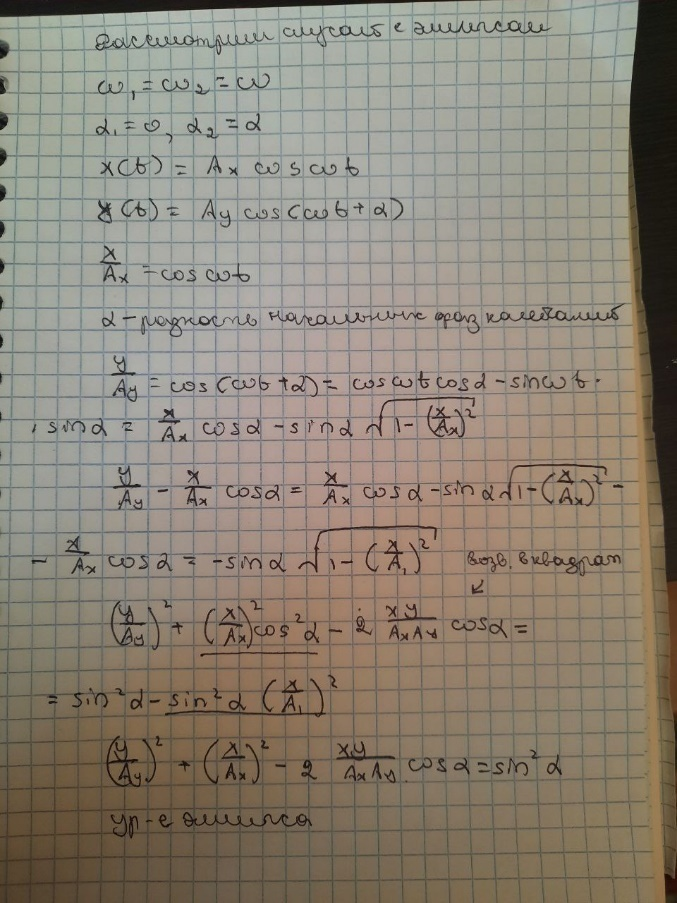 Рассмотрим случай с эллипсом
ω₁ = ω₂ = ω
α₁ = 0, α₂ = α
x(t) = Aₓ cos ωt
y(t) = Ay cos(ωt + α)
x/Aₓ = cos ωt
α – разность начальных фаз колебаний
y/Ay = cos(ωt + α) = cos ωt cos α – sin ωt ·
· sin α = x/Aₓ cos α – sin α √(1 – (x/Aₓ)²)
y/Ay – x/Aₓ cos α = x/Aₓ cos α – sin α √(1 – (x/Aₓ)²) –
– x/Aₓ cos α = – sin α √(1 – (x/A₁)²) возв. в квадрат
↙
(y/Ay)² + (x/Aₓ)² cos² α – 2 xy/AₓAy cos α =
= sin² α – sin² α (x/A₁)²
(y/Ay)² + (x/Aₓ)² – 2 xy/AₓAy cos α = sin² α
ур-е эллипса